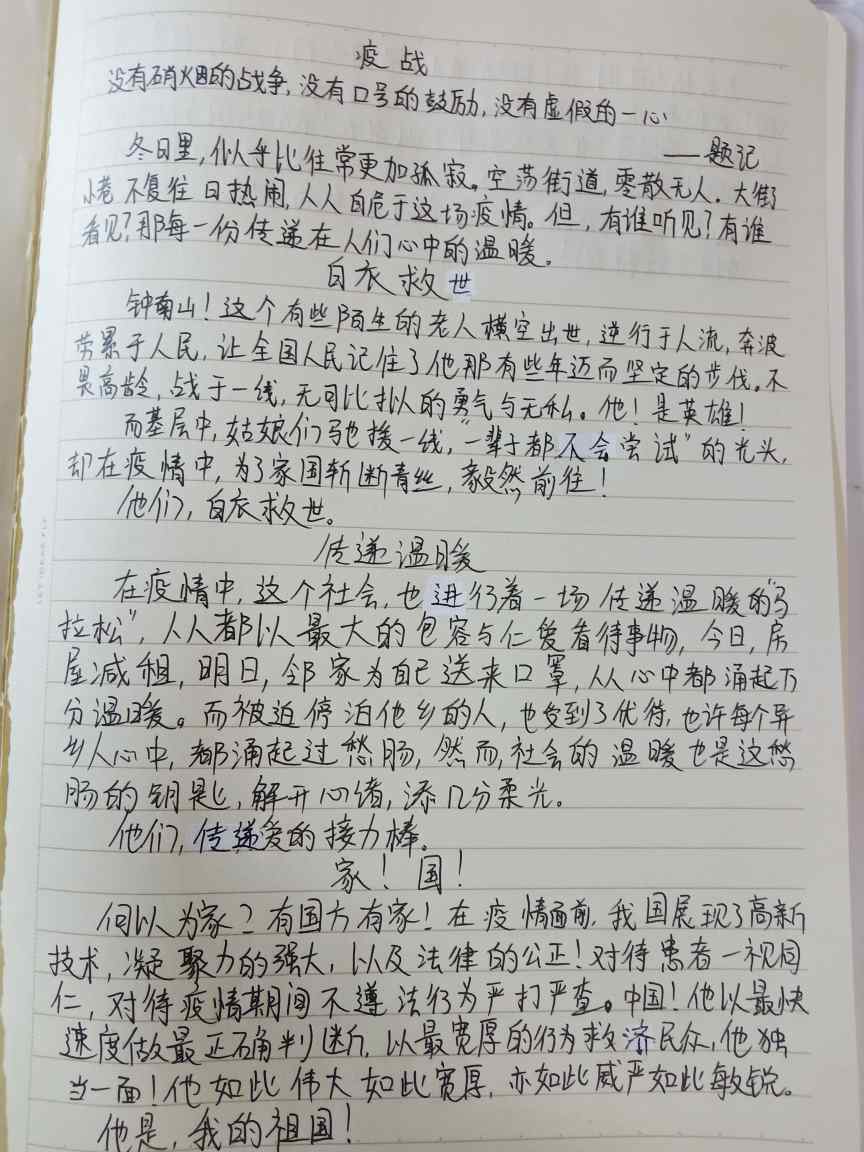 疫战
没有硝烟的战争，没有口号的鼓励，没有虚假的一心
——题记
冬日里，似乎比往常更加孤寂。空荡街道，零散无人。大街
小巷不复往日热闹，人人自危于这场疫情。但，有谁听见？有谁
看见？那每一份传递在人们心中的温暖。
白衣救世
钟南山！这个有些陌生的老人横空出世，逆行于人流，奔波
劳累于人民，让全国人民记住了他那有些年迈而坚定的步伐。不
畏高龄，战于一线，无可比拟的勇气与无私。他！是英雄！
而基层中，姑娘们驰援一线，“一辈子都不会尝试”的光头，
却在疫情中，为了家国斩断青丝，毅然前往！
他们，白衣救世。
传递温暖
在疫情中，这个社会，也进行着一场传递温暖的“马
拉松”，人人都以最大的包容与仁爱看待事物，今日，房
屋减租，明日，邻家为自己送来口罩，人人心中都涌起万
分温暖。而被迫停泊他乡的人，也受到了优待，也许每个异
乡人心中，都涌起过愁肠，然而，社会的温暖也是这愁
肠的钥匙，解开心绪，添几分柔光。
他们，传递爱的接力棒。
家！国！
何以为家？有国方有家！在疫情面前，我国展现了高新
技术，凝聚力的强大，以及法律的公正！对待患者一视同
仁，对待疫情期间不遵法行为严打严查。中国！他以最快
速度做最正确判断，以最宽厚的行为救济民众，他独
当一面！他如此伟大如此宽厚，亦如此威严如此敏锐。
他是，我的祖国！